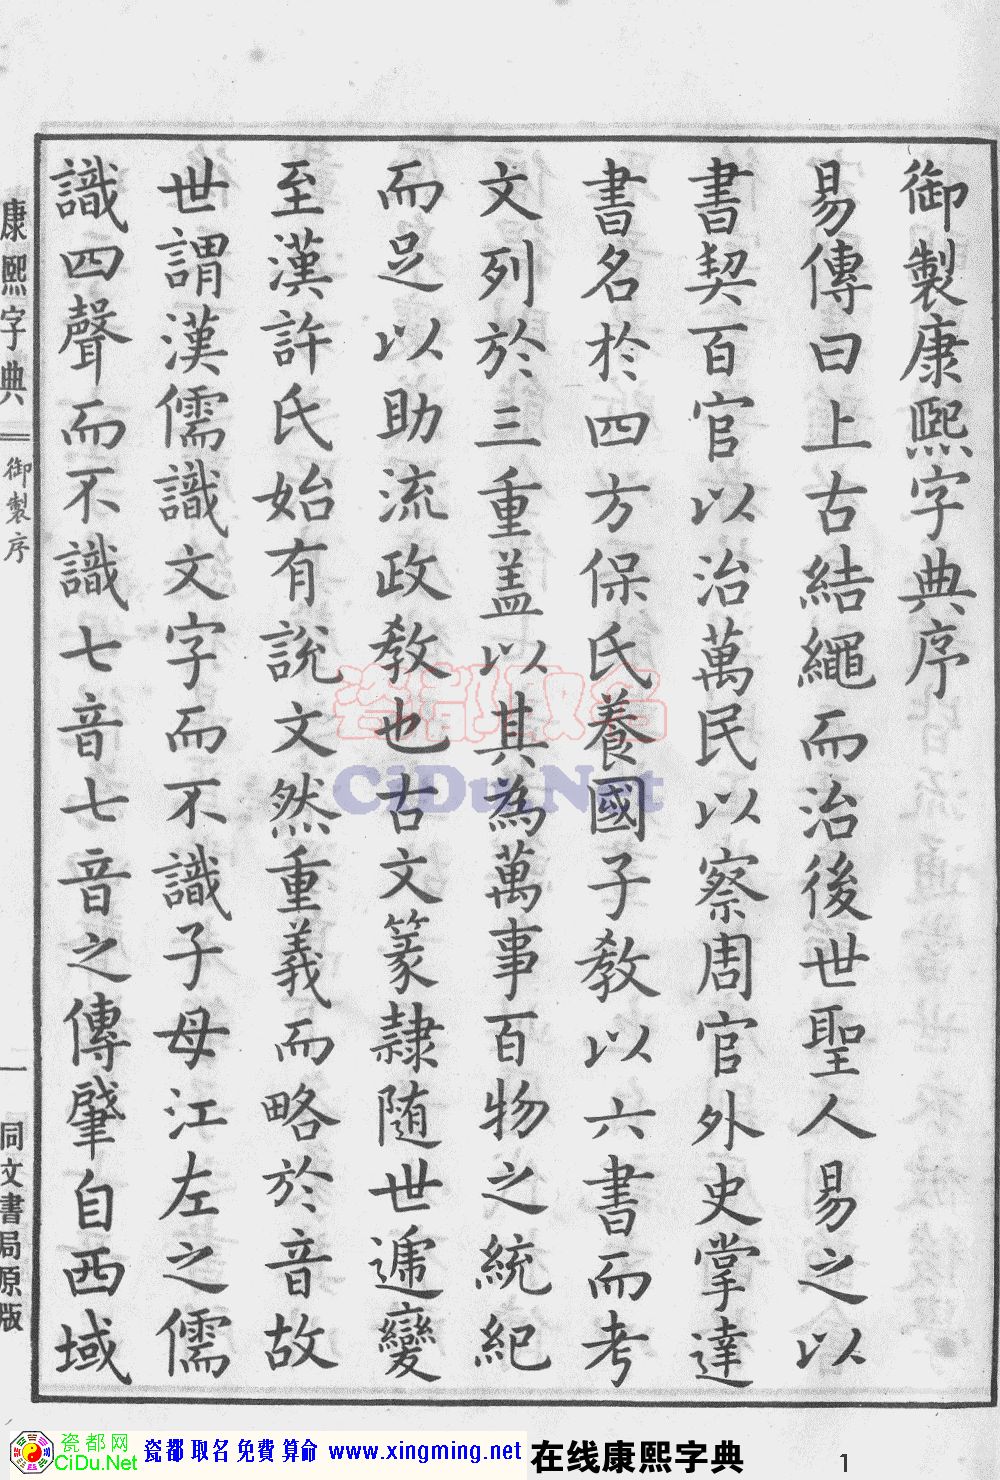 御製康熙字典序
易傳曰上古結繩而治後世聖人易之以
書契百官以治萬民以察周官外史掌達
書名於四方保氏養國子教以六書而考
文列於三重蓋以其為萬事百物之統紀
而足以助流政教也古文篆隸随世遞變
至漢許氏始有說文然重義而略於音故
世謂漢儒識文字而不識子母江左之儒
識四聲而不識七音七音之傳肇自西域
康熙字典
御製序
一
同文書局原版
瓷都取名
CiDu.Net
瓷都网
CiDu.Net
瓷都 取名 免費 算命 www.xingming.net 在线康熙字典 1